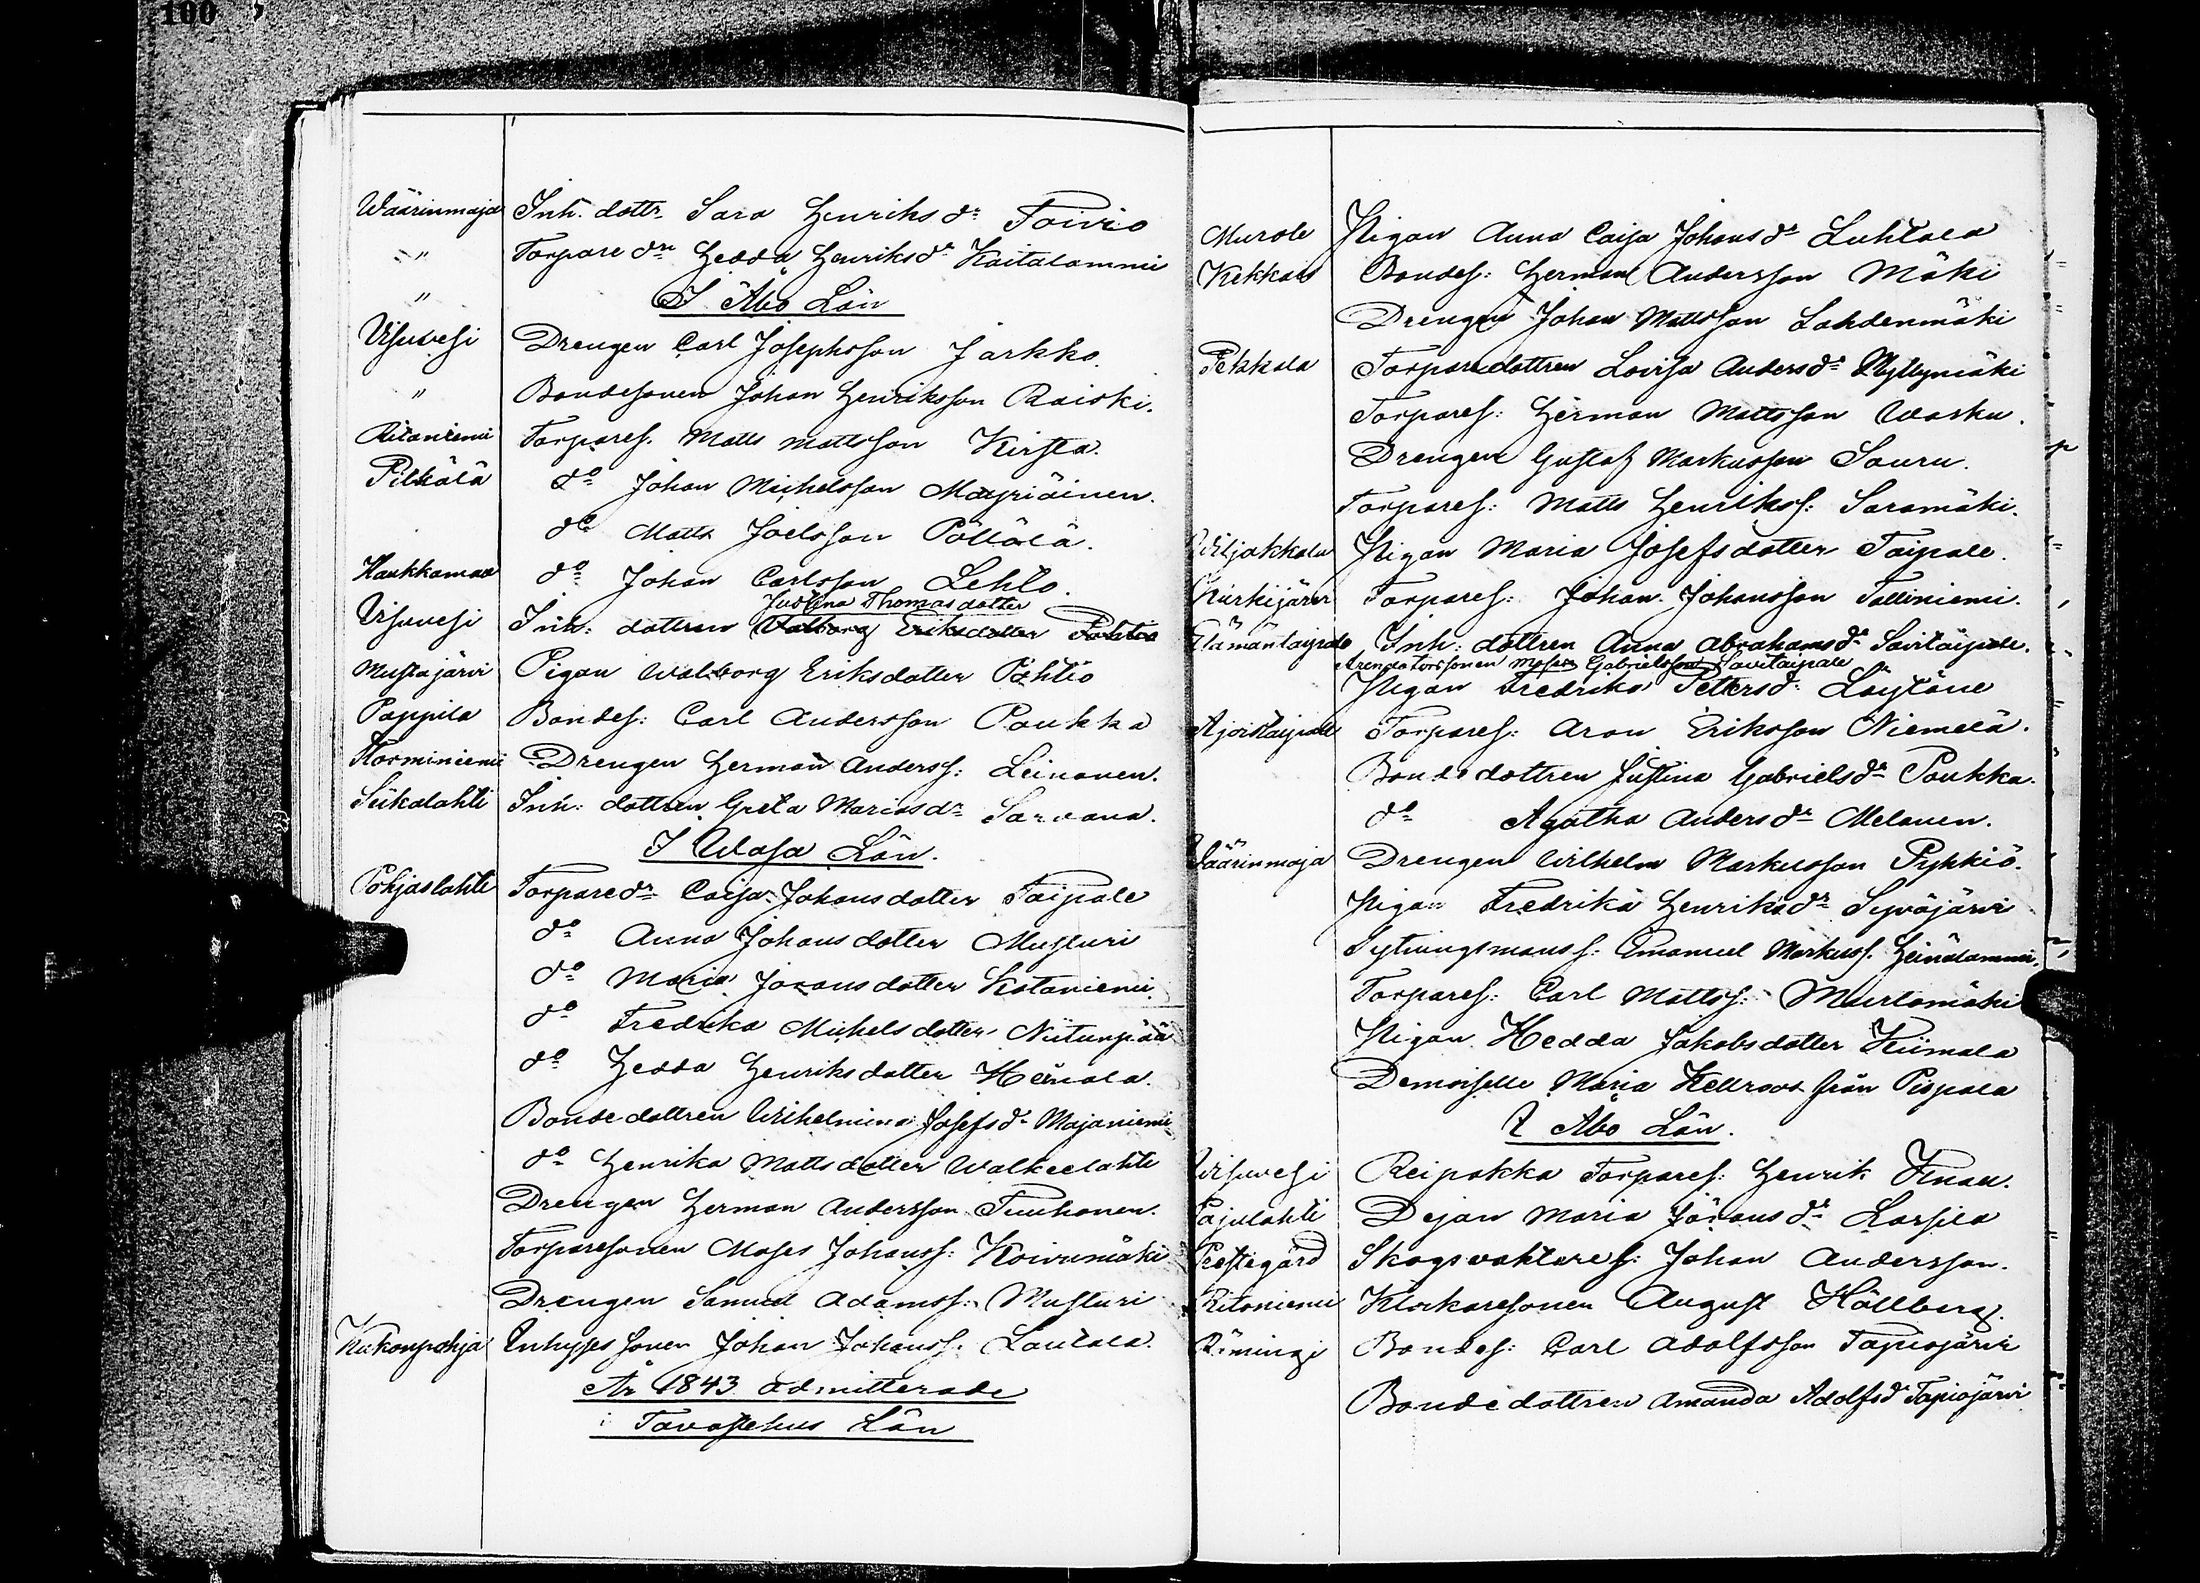 100
Wäärinmaja Inh. dottr. Sara Henriksdr Toivio
" Torpare dr Hedda Henriksdr Kaitalammi
" I Åbo Län
Wisuvesi Drengen Carl Josephsson Jarkko.
" Bondesonen Johan Henriksson Raiski.
Ritaniemi Torpares. Matts Mattsson Kirsta.
Pilkälä do Johan Michelsson Mäyriäinen.
do Matts Joelsson Pöllälä.
Haukkamaa do Johan Carlsson Lehto.
Judina Thomasdotter
Wisuvesi Inh: dottren Walborg Eriksdotter Pohtio
Mustajärvi Pigan Walborg Eriksdotter Pohtio
Pappila Bondes: Carl Andersson Poukka
Korminiemi Drengen Herman Anderss: Leinonen.
Siikalahti Inh: dottren Greta Mariasdr Sarvana.
I Wasa Län.
Pohjaslahti Torparedr Caisa Johansdotter Taipale
do Anna Johansdotter Musturi
do Maria Johansdotter Kotaniemi
do Fredrika Michelsdotter Niitunpää
do Hedda Henriksdotter Heinola.
Bondedottren Wilhelmina Josefsdr Majaniemi
do Henrika Mattsdotter Walkeelahti
Drengen Herman Andersson Tuuhonen.
Torparesonen Moses Johanss: Koivumäki
Drengen Samuel Adamss: Musturi
Kukonpohja Inhysessonen Johan Johanss. Lautala.
År 1843 admitterade
i Tavastehus Län
Murole Pigan Anna Caisa Johansdr Luhtala
Kekkois Bondes: Herman Andersson Mäki
Drengen Johan Mattsson Lahdenmäki
Pekkala Torparedottren Lovisa Andersdr Myllymäki
Torpares: Herman Mattsson Wasku.
Drengen Gustaf Markusson Sauru.
Torpares: Matts Henrikss: Saramäki.
Wiljakkala Pigan Maria Josefsdotter Taipale.
Kurkijärvi Torpares: Johan Johansson Talliniemi.
Elämäntaipale Inh: dottren Anna Abrahamsdr Savitaipale.
Arendatorssonen Moses Gabrielsson Savitaipale
Pigan Fredrika Pettersdr Löytäne
Ajostaipale Torpares: Aron Eriksson Niemelä.
Bondedottren Justina Gabrielsdr Poukka.
do Agatha Andersdr Melanen.
Wäärinmaja Drengen Wilhelm Markusson Pykkiö.
Pigan Fredrika Henriksdr Syväjärvi
Sytningsmanss: Emanuel Markuss. Heinälammi.
Torpares: Carl Mattss: Murtomäki
Pigan Hedda Jakobsdotter Kiimala
Demoiselle Maria Hellroos från Pispala
I Åbo Län.
Wisuvesi Reipakka Torpares: Henrik Knau.
Pajulahti Dejan Maria Johansdr Lassila
Prestegård Skogsvaktares: Johan Andersson.
Ritoniemi Klockaresonen August Hällberg.
Rämingi Bondes: Carl Adolfsson Tapiojärvi
Bondedottren Amanda Adolfsdr Tapiojärvi